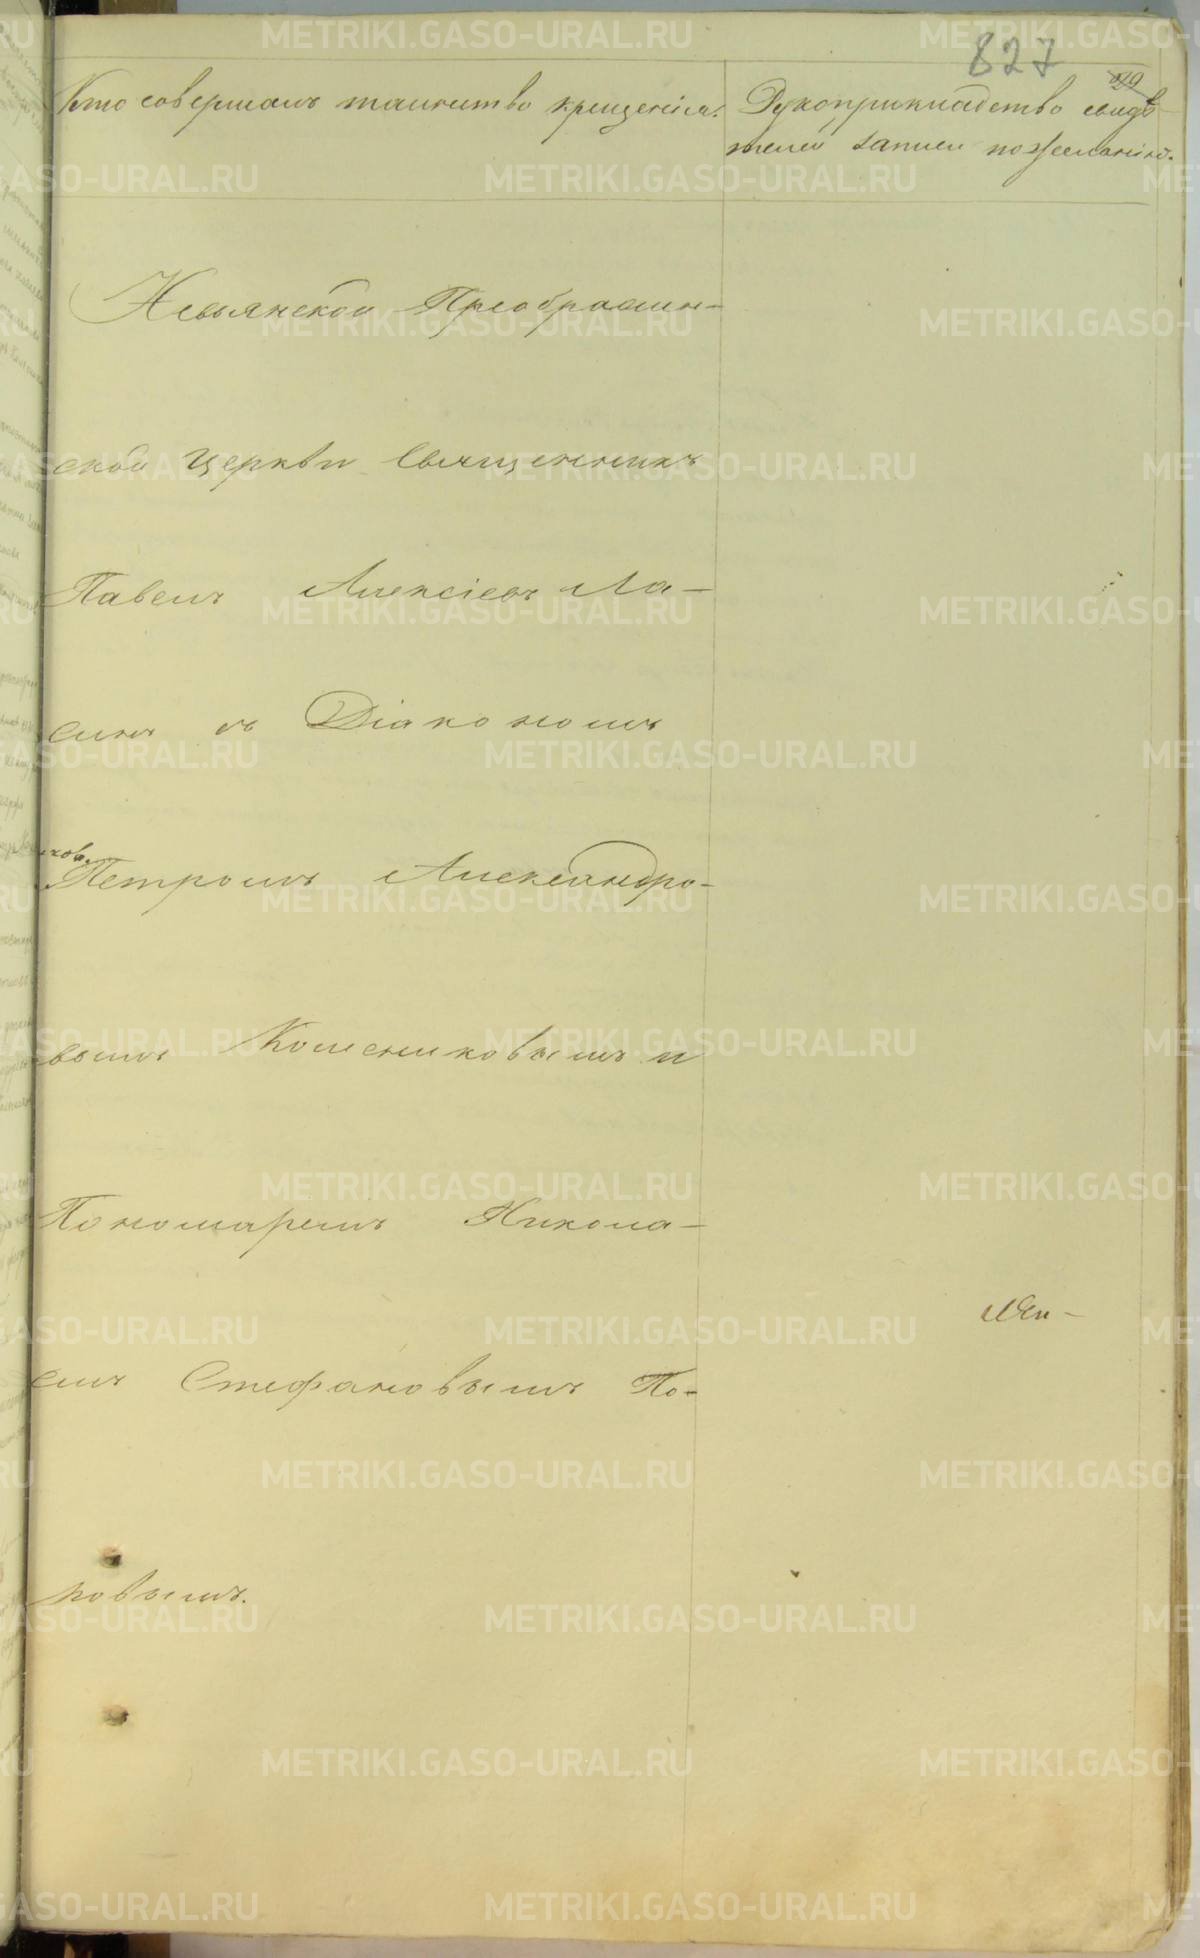 827
Кто совершалъ таинство крещенія.
Рукоприкладство свидѣ-
телей записи по желанію.
Невьянской Преображен-
ской Церкви Священникъ
Павелъ Алексіевъ Ла-
синъ съ Діакономъ
Петромъ Александро-
вымъ Колесниковымъ и
Пономаремъ Никола-
емъ Стефановымъ По-
повымъ.
METRIKI.GASO-URAL.RU